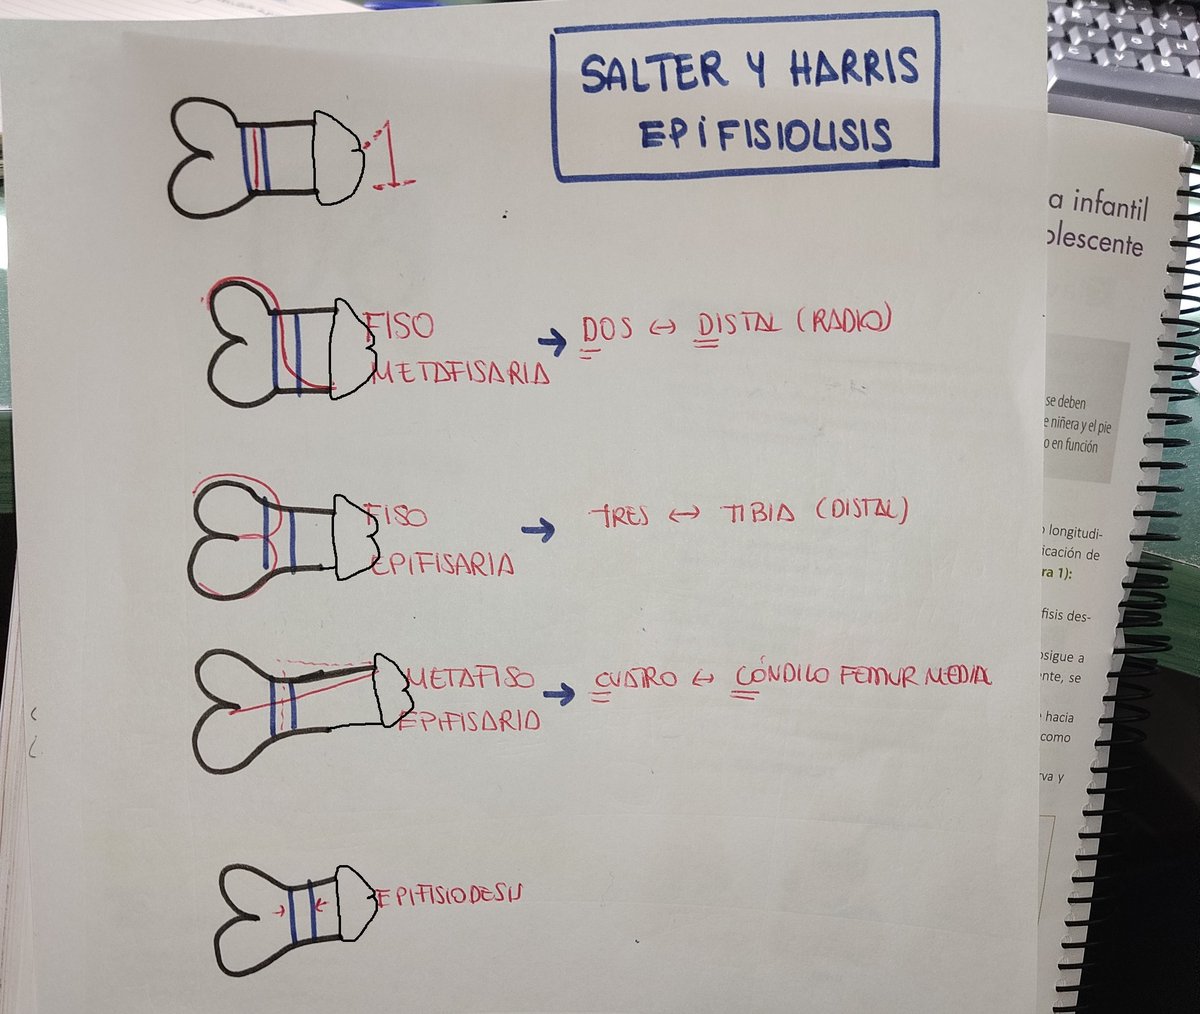 SALTER Y HARRIS
EPIFISIOLISIS
1
FISO
METAFISARIA → DOS ↔ DISTAL (RADIO)
FISO
EPIFISARIA → TRES ↔ TIBIA (DISTAL)
METAFISO
EPIFISARIA → CUATRO ↔ CÓNDILO FEMUR MEDIAL
EPIFISIODESIS
a infantil
olescente
se deben
e niñera y el pie
o en función
longitudi-
icación de
ra 1):
fisis des-
sigue a
nte, se
hacia
como
rva y